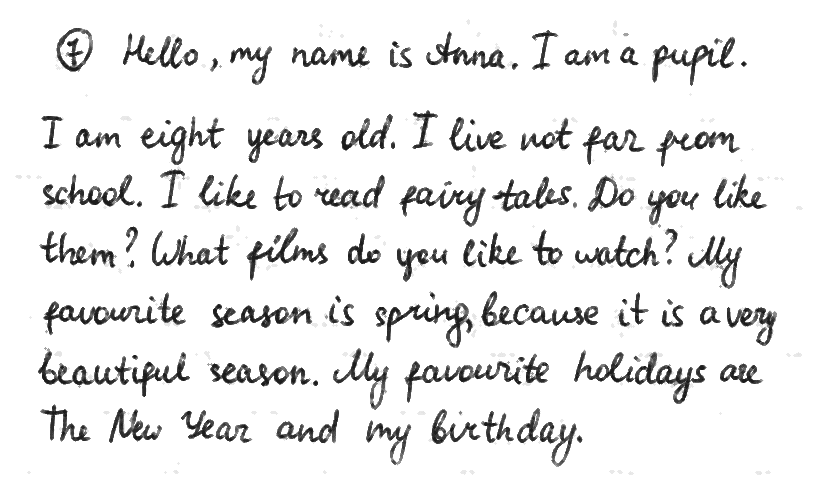 ① Hello, my name is Anna. I am a pupil.
I am eight years old. I live not far from
school. I like to read fairy tales. Do you like
them? What films do you like to watch? My
favourite season is spring, because it is a very
beautiful season. My favourite holidays are
The New Year and my birthday.